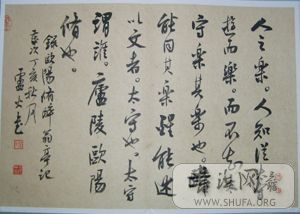 人之樂。人知從
遊而樂。而不知
守樂其樂也。醉
能同其樂醒能述
以文者。太守也。太守
謂誰。廬陵歐陽
脩也。
錄歐陽脩醉翁亭記
歲次丁亥秋月
WWW.SHUFA.ORG